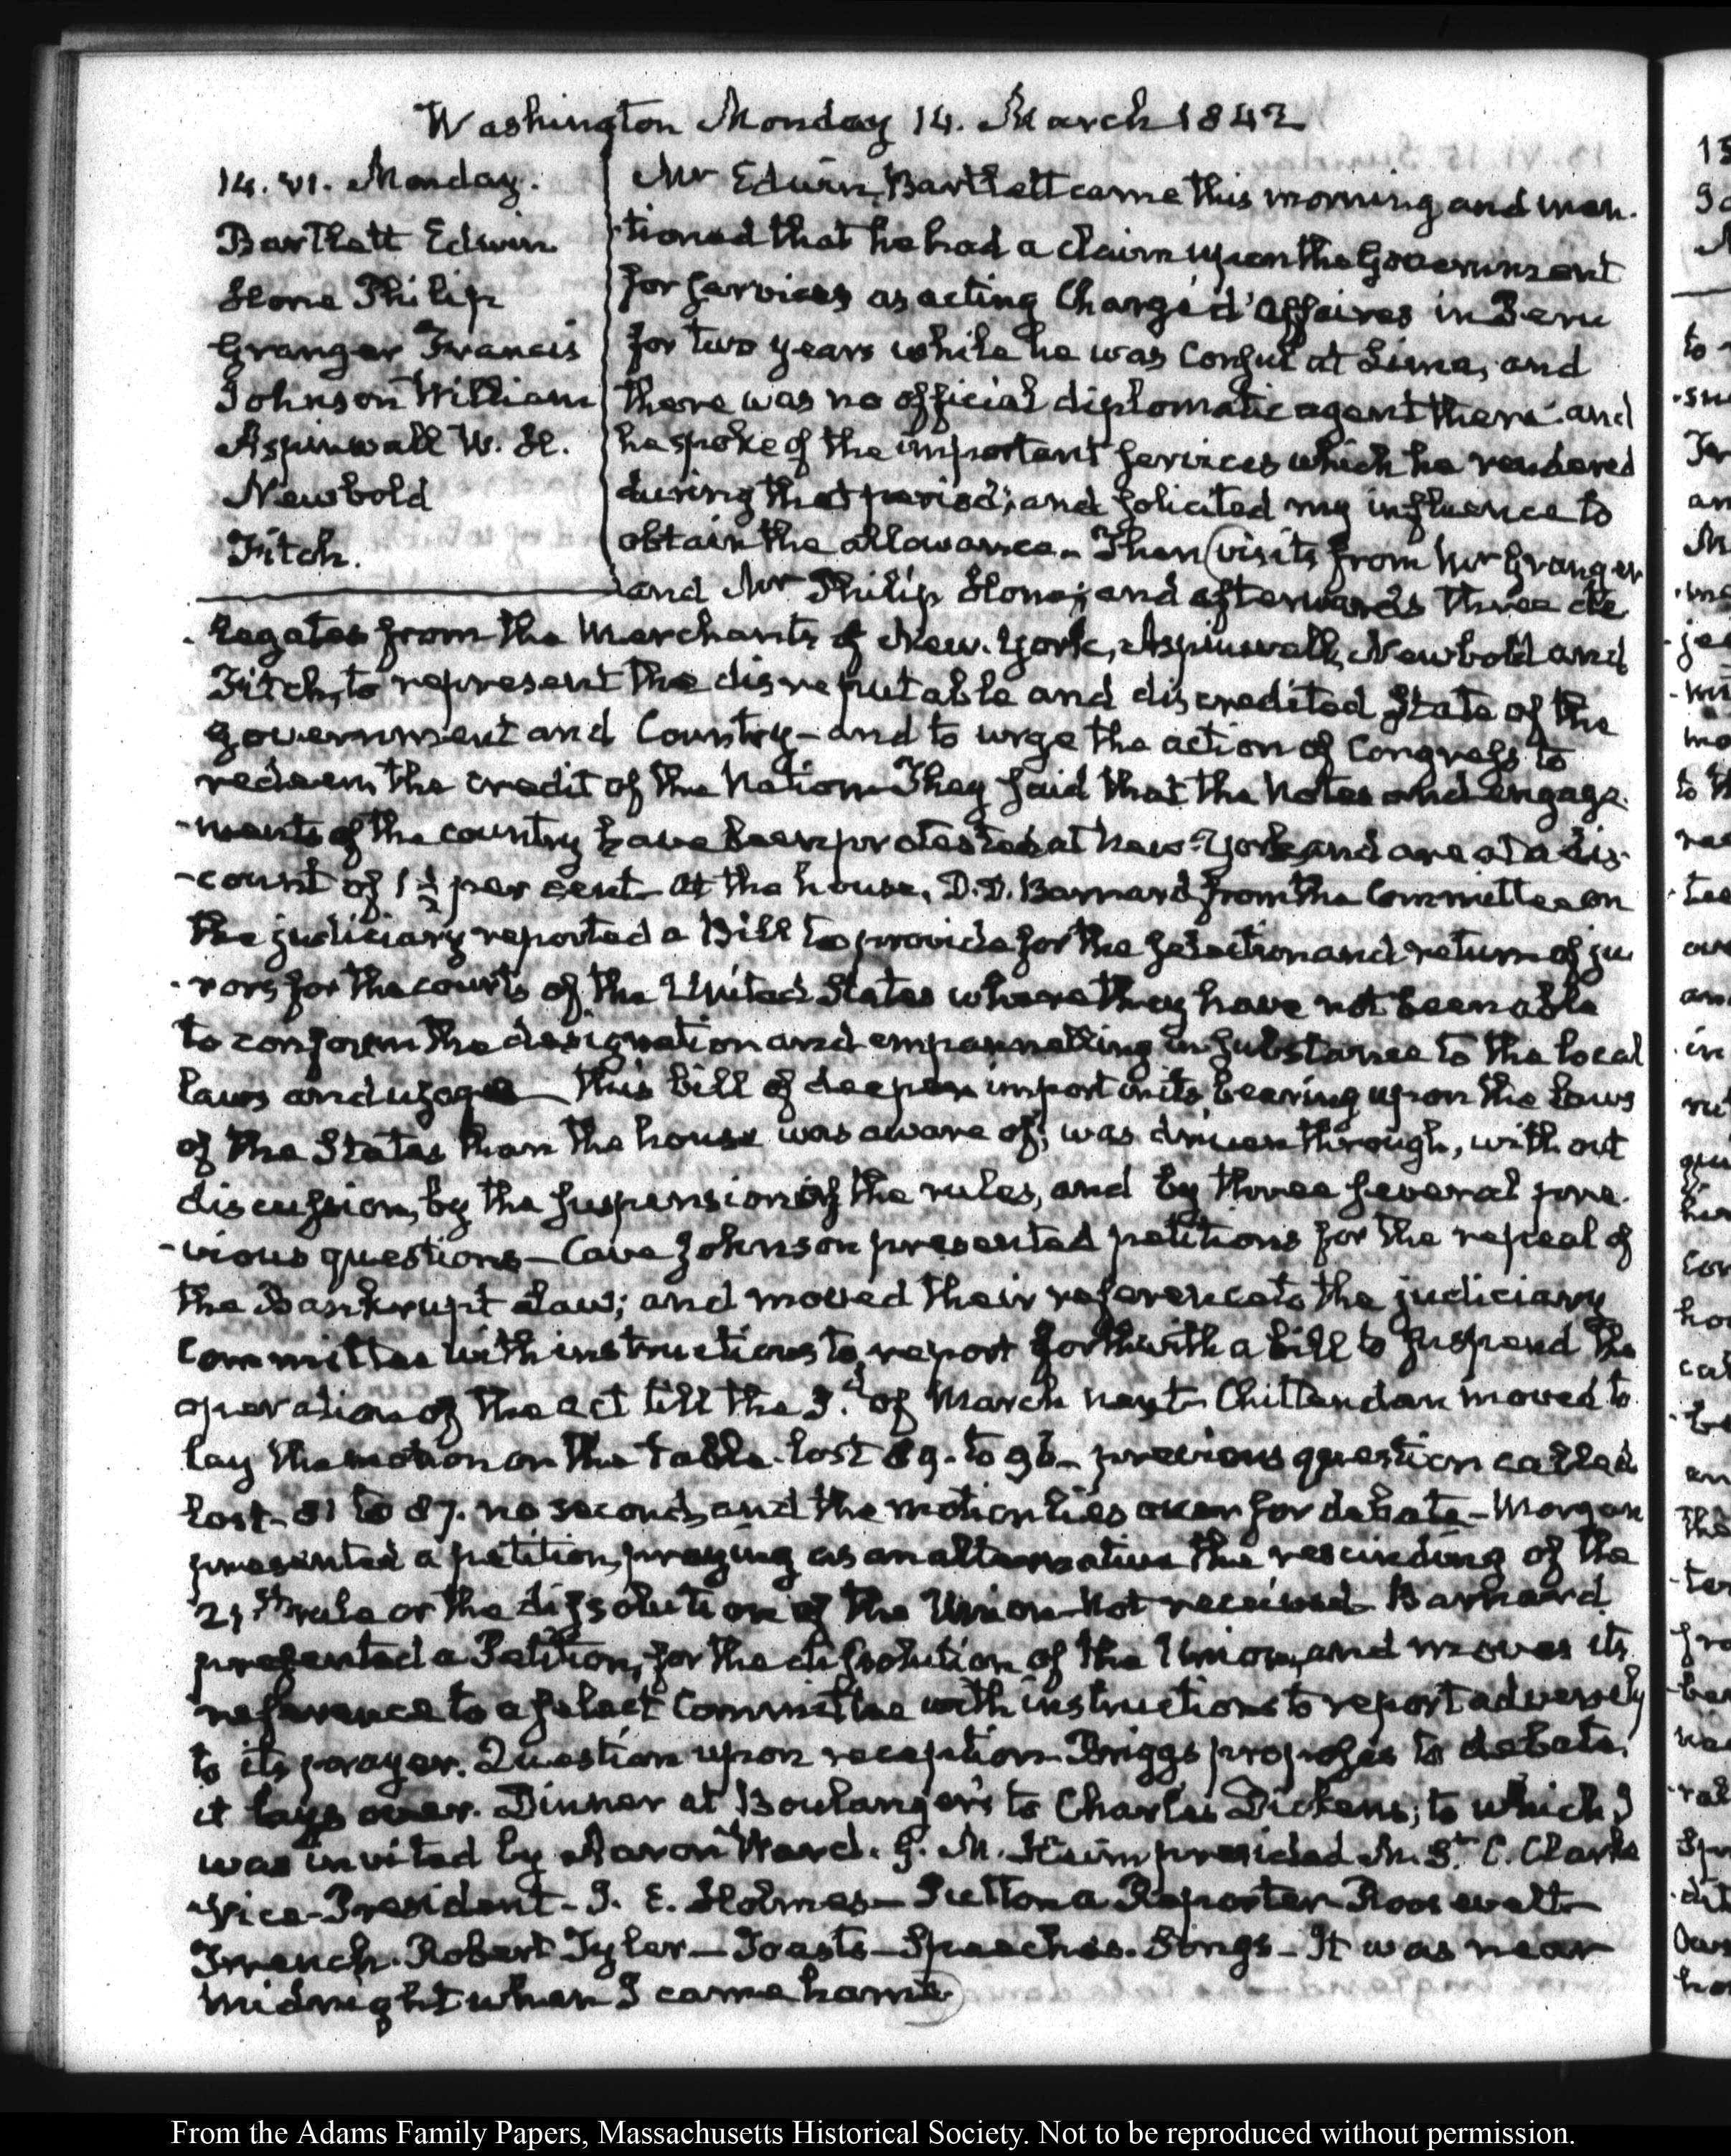 Washington Monday 14. March 1842
14. VI. Monday.
Bartlett Edwin
Hone Philip
Granger Francis
Johnson William
Aspinwall W. H.
Newbold
Fitch.
Mr Edwin Bartlett came this morning and men-
-tioned that he had a claim upon the Government
for services as acting Chargé d'affaires in Peru
for two years while he was Consul at Lima, and
there was no official diplomatic agent there: and
he spoke of the important services which he rendered
during that period; and solicited my influence to
obtain the allowance. Then visits from Mr Granger
and Mr Philip Hone; and afterwards three de
-legates from the Merchants of New-York, Aspinwall, Newbold and
Fitch, to represent the disreputable and discredited State of the
government and Country – and to urge the action of Congress to
redeem the credit of the Nation – They said that the Notes and engage-
-ments of the country have been protested at New-York and are at a dis-
-count of 1½ per cent – At the house, D. D. Barnard from the Committee on
the judiciary reported a Bill to provide for the selection and return of ju
-rors for the courts of the United States where they have not been able
to conform the designation and empannelling in substance to the local
laws and usage – This bill of deeper import in its bearing upon the laws
of the States than the house was aware of, was driven through, without
discussion, by the suspension of the rules, and by three several pre-
-vious questions – Cave Johnson presented petitions for the repeal of
the Bankrupt Law; and moved their reference to the judiciary
Committee with instructions to report forthwith a bill to suspend the
operation of the act till the 3.d of March next – Chittenden moved to
lay the motion on the table – lost 89. to 96 – previous question called
lost – 81 to 87. no second, and the motion lies over for debate – Morgan
presented a petition, praying as an alternative the rescinding of the
21st rule or the dissolution of the Union – Not received – Barnard
presented a Petition, for the dissolution of the Union, and moves its
reference to a select Committee with instructions to report adversely
to its prayer. Question upon reception – Briggs proposes to debate.
it lays over. Dinner at Boulanger's to Charles Dickens; to which I
was invited by Aaron Ward. G. M. Keim presided M. St. C. Clarke
Vice-President – I. E. Holmes – Sutton a Reporter – Roosevelt –
French. Robert Tyler – Toasts – Speeches. Songs – It was near
midnight when I came home
From the Adams Family Papers, Massachusetts Historical Society. Not to be reproduced without permission.